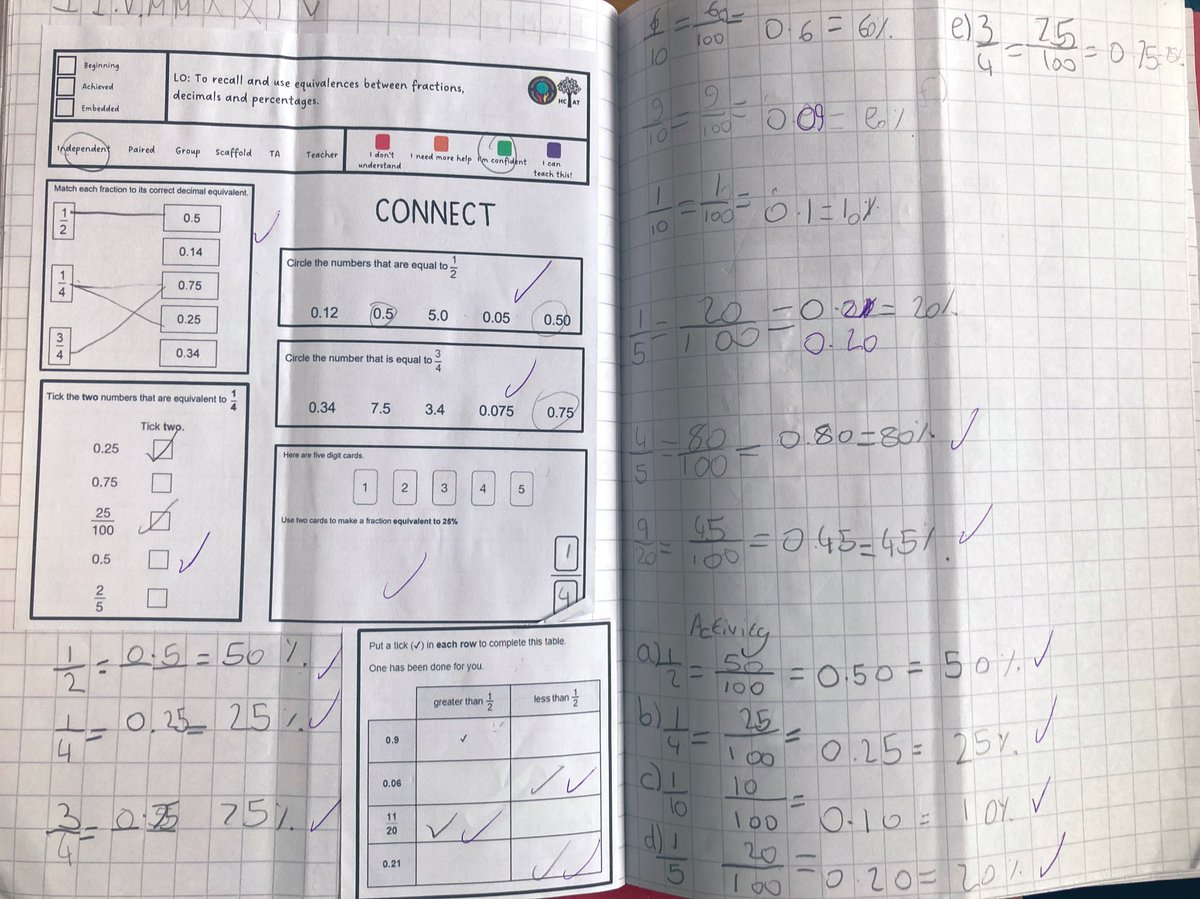 Beginning
Achieved
Embedded
LO: To recall and use equivalences between fractions,
decimals and percentages.
HC AT
Independent Paired Group Scaffold TA Teacher
I don't understand
I need more help
I'm confident
I can teach this!
Match each fraction to its correct decimal equivalent.
1/2
1/4
3/4
0.5
0.14
0.75
0.25
0.34
CONNECT
Circle the numbers that are equal to 1/2
0.12 0.5 5.0 0.05 0.50
Circle the number that is equal to 3/4
0.34 7.5 3.4 0.075 0.75
Tick the two numbers that are equivalent to 1/4
Tick two.
0.25 ✓
0.75
25/100 ✓
0.5
2/5
Here are five digit cards.
1 2 3 4 5
Use two cards to make a fraction equivalent to 25%
1/4
1/2 = 0.5 = 50 %
1/4 = 0.25 = 25 %
3/4 = 75%
Put a tick (✓) in each row to complete this table.
One has been done for you.
greater than 1/2 less than 1/2
0.9 ✓
0.06 ✓
11/20 ✓
0.21 ✓
6/10 = 60/100 = 0.6 = 60%
9/10 = 9/100 = 0.09 =
1/10 = 1/100 = 0.1 = 10%
1/5 = 20/100 = 0.2 = 20%
0.20
4/5 = 80/100 = 0.80 = 80%
9/20 = 45/100 = 0.45 = 45%
Activity
a) 1/2 = 50/100 = 0.50 = 50%
b) 1/4 = 25/100 = 0.25 = 25%
c) 1/10 10/100 = 0.10 = 10%
d) 1/5 20/100 = 0.20 = 20%
e) 3/4 = 75/100 = 0.75 = 75%